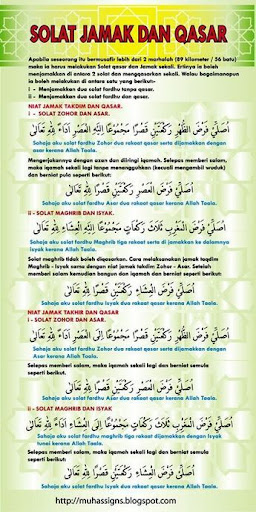 SOLAT JAMAK DAN QASAR
Apabila seseorang itu bermusafir lebih dari 2 marhalah (89 kilometer / 56 batu)
maka ia harus melakukan Solat qasar dan Jamak sekali. Ertinya ia boleh
menjamakkan di antara 2 solat dan mengqasarkan sekali. Walau bagaimanapun
ia boleh melakukan di antara satu dari berikut:
i - Menjamakkan dua solat fardhu tanpa qasar.
ii - Menjamakkan dua solat fardhu dan qasar.
NIAT JAMAK TAKDIM DAN QASAR.
i - SOLAT ZOHOR DAN ASAR.
أُصَلِّيْ فَرْضَ الظُّهْرِ رَكْعَتَيْنِ قَصْرًا مَجْمُوْعًا إِلَيْهِ الْعَصْرِ أَدَاءً لِلّٰهِ تَعَالَىٰ
Sahaja aku solat fardhu Zohor dua rakaat qasar serta dijamakkan dengan
Asar kerana Allah Taala.
Mengerjakannya dengan azan dan diiringi iqamah. Selepas memberi salam,
maka iqamah sekali lagi tanpa menangguhkan (kecuali mengambil wuduk)
dan berniat pula seperti berikut:
أُصَلِّيْ فَرْضَ الْعَصْرِ رَكْعَتَيْنِ قَصْرًا لِلّٰهِ تَعَالَىٰ
Sahaja aku solat fardhu Asar dua rakaat qasar kerana Allah Taala.
ii - SOLAT MAGHRIB DAN ISYAK.
أُصَلِّيْ فَرْضَ الْمَغْرِبِ ثَلَاثَ رَكَعَاتٍ مَجْمُوْعًا إِلَيْهِ الْعِشَاءِ لِلّٰهِ تَعَالَىٰ
Sahaja aku solat fardhu Maghrib tiga rakaat serta di jamakkan ke dalamnya
isyak kerana Allah Taala.
Solat maghrib tidak boleh diqasarkan. Cara melaksanakan jamak taqdim
Maghrib - Isyak sama dengan niat jamak takdim Zohor - Asar. Setelah
memberi salam kemudian bangun dan iqamah dan berniat seperti berikut:
أُصَلِّيْ فَرْضَ الْعِشَاءِ رَكْعَتَيْنِ قَصْرًا لِلّٰهِ تَعَالَىٰ
Sahaja aku solat fardhu Isyak dua rakaat qasar kerana Allah Taala.
NIAT JAMAK TAKHIR DAN QASAR
i - SOLAT ZOHOR DAN ASAR.
أُصَلِّيْ فَرْضَ الظُّهْرِ رَكْعَتَيْنِ قَصْرًا مَجْمُوْعًا إِلَى الْعَصْرِ أَدَاءً لِلّٰهِ تَعَالَىٰ
Sahaja aku solat fardhu Zohor dua rakaat qasar serta dijamakkan dengan
Asar kerana Allah Taala.
Selepas memberi salam, maka iqamah sekali lagi dan berniat semula
seperti berikut:
أُصَلِّيْ فَرْضَ الْعَصْرِ رَكْعَتَيْنِ قَصْرًا لِلّٰهِ تَعَالَىٰ
Sahaja aku solat fardhu Asar dua rakaat qasar kerana Allah Taala.
ii - SOLAT MAGHRIB DAN ISYAK
أُصَلِّيْ فَرْضَ الْمَغْرِبِ ثَلَاثَ رَكَعَاتٍ مَجْمُوْعًا إِلَى الْعِشَاءِ أَدَاءً لِلّٰهِ تَعَالَىٰ
Sahaja aku solat fardhu maghrib tiga rakaat dijamakkan dengan isyak
tunai kerana Allah Taala.
Selepas memberi salam, maka iqamah sekali lagi dan berniat semula
seperti berikut:
أُصَلِّيْ فَرْضَ الْعِشَاءِ رَكْعَتَيْنِ قَصْرًا لِلّٰهِ تَعَالَىٰ
Sahaja aku solat fardhu Isyak dua rakaat qasar kerana Allah Taala.
http://muhassigns.blogspot.com